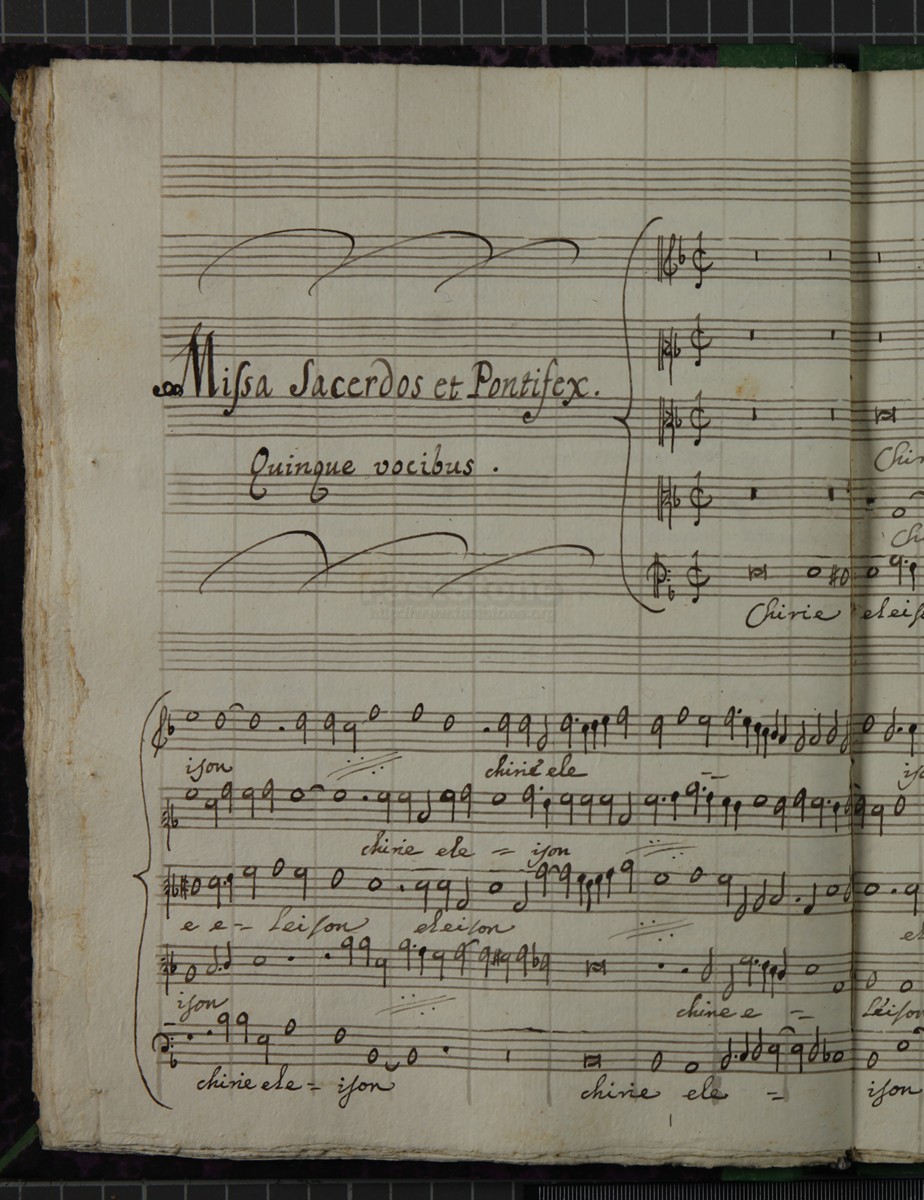 Missa Sacerdos et Pontifex.
Quinque vocibus.
Chirie eleis
ison chirie ele
chirie ele = ison
e e-= leison eleison
ison chirie e = leison
chirie ele = ison chirie ele = ison